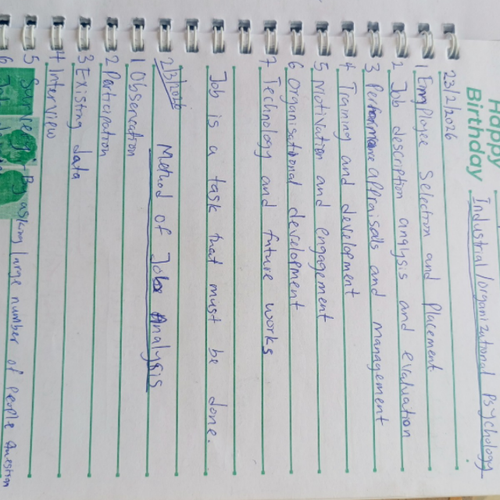 Happy
Birthday
Industrial/organizational Psychology
23/2/2026
1 Employee Selection and Placement
2 Job description analysis and evaluation
3 Performance appraisals and management
4 Training and development
5 Motivation and engagement
6 Organisational development
7 Technology and future works
Job is a task that must be done.
2/3/2026
Method of Job Analysis
1 Observation
2 Participation
3 Existing data
4 Interview
5 asking large number of people question
6